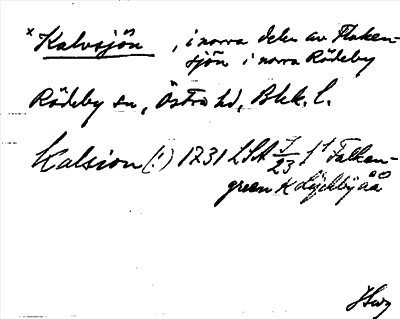 x Kalvsjön, i norra delen av Flaken-
sjön i norra Rödeby
Rödeby sn, Östra hd, Blek. l.
Kalsion (!) 1731 LSA 7/23 f¹ Falken-
green K Lyckbyåå